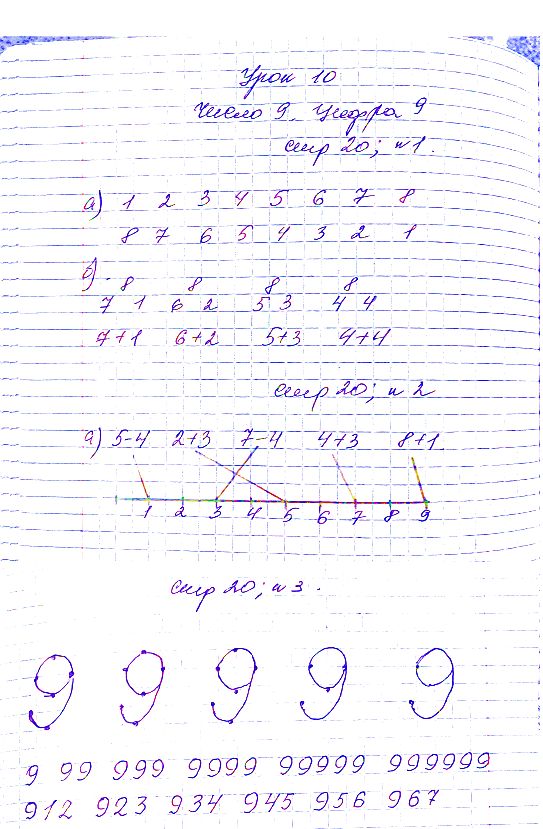 Урок 10
Число 9. Цифра 9
стр 20; н 1.
а) 1 2 3 4 5 6 7 8
8 7 6 5 4 3 2 1
б) 8 8 8 8
7 1 6 2 5 3 4 4
7+1 6+2 5+3 4+4
стр 20; н 2
а) 5-4 2+3 7-4 4+3 8+1
1 2 3 4 5 6 7 8 9
стр 20; н 3.
9 9 9 9 9
9 99 999 9999 99999 999999
912 923 934 945 956 967